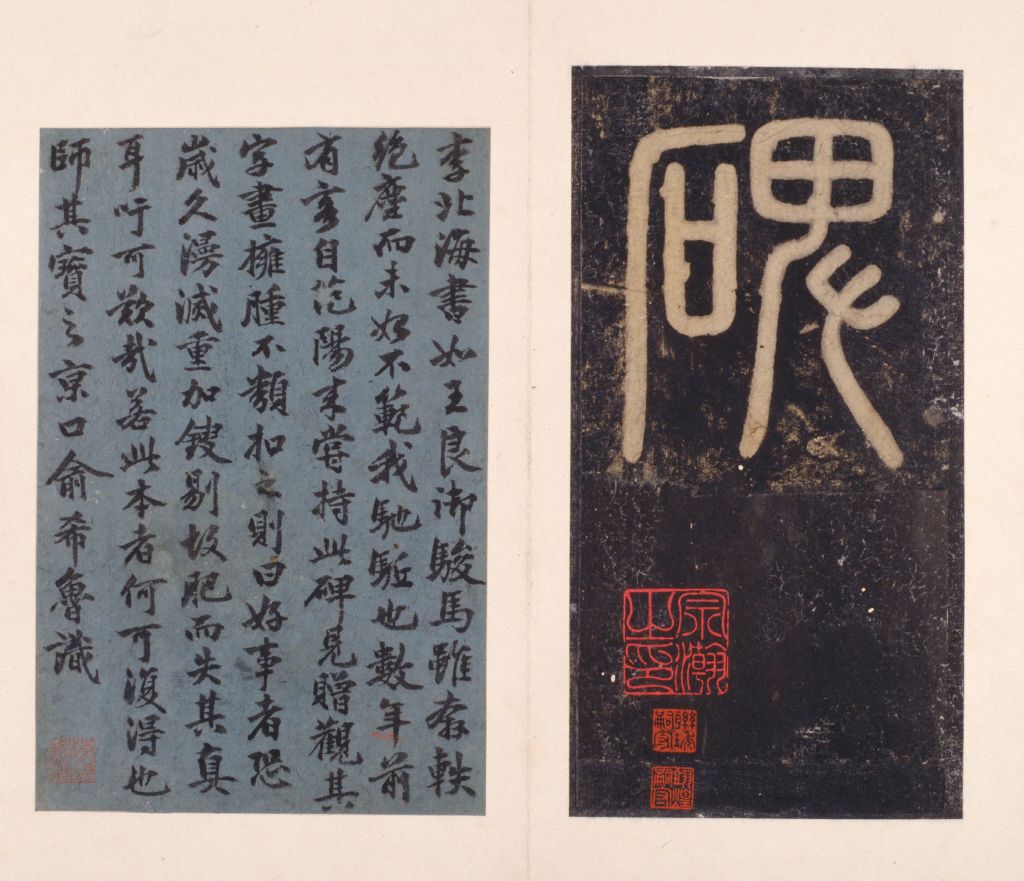 碑
宗瀚之印
李北海書如王良御駿馬雖奔軼
絕塵而未始不範我馳驅也數年前
有客自范陽來嘗持此碑見贈觀其
字畫擁腫不類扣之則曰好事者恐
歲久漫滅重加鍥剔故肥而失其真
耳吁可歎哉若此本者何可復得也
師其寶之京口俞希魯識